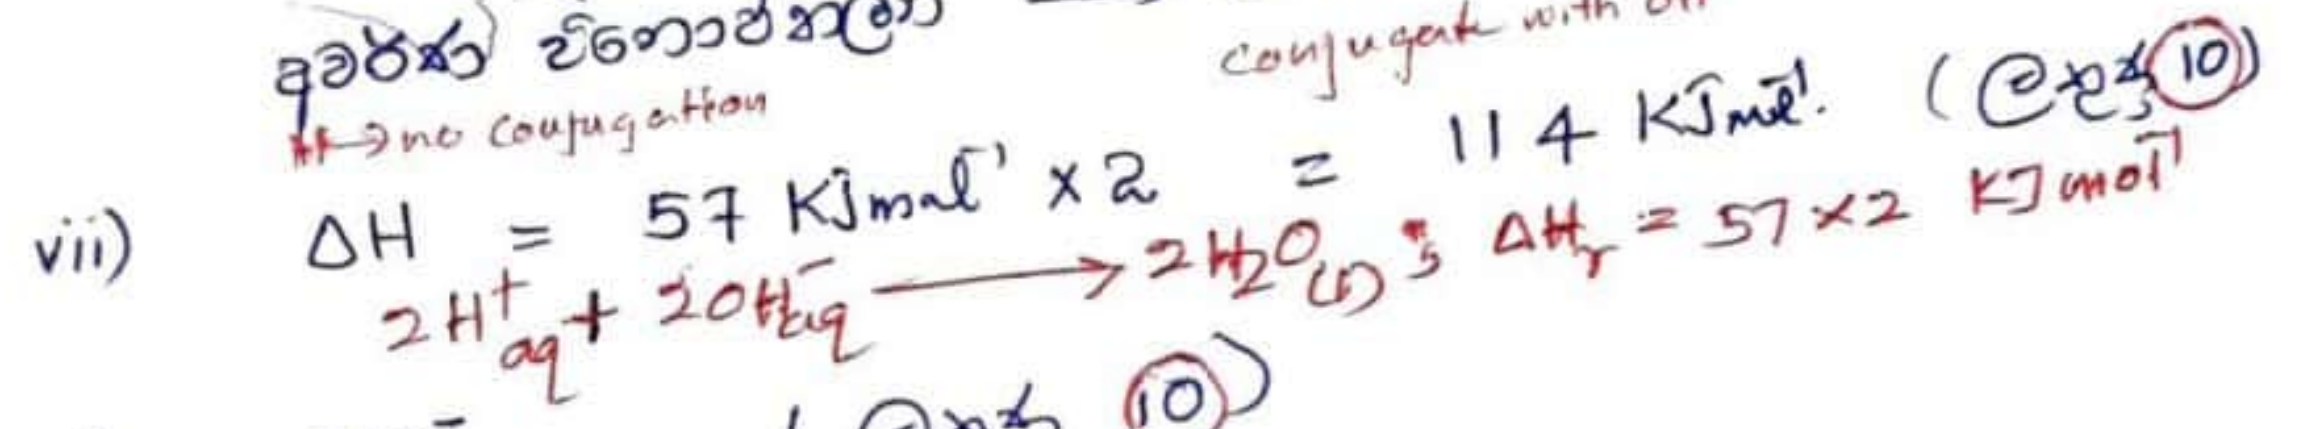 අවර්ණ පිනොප්තලීන්
conjugate with
→ no conjugation
vii) ΔH = 57 KJmol⁻¹ × 2 = 114 KJmol⁻¹. (ලකුණු 10)
2H⁺aq + 2OH⁻aq ⟶ 2H₂O(l) ; ΔHr = 57 × 2 KJ mol⁻¹
(ලකුණු 10)